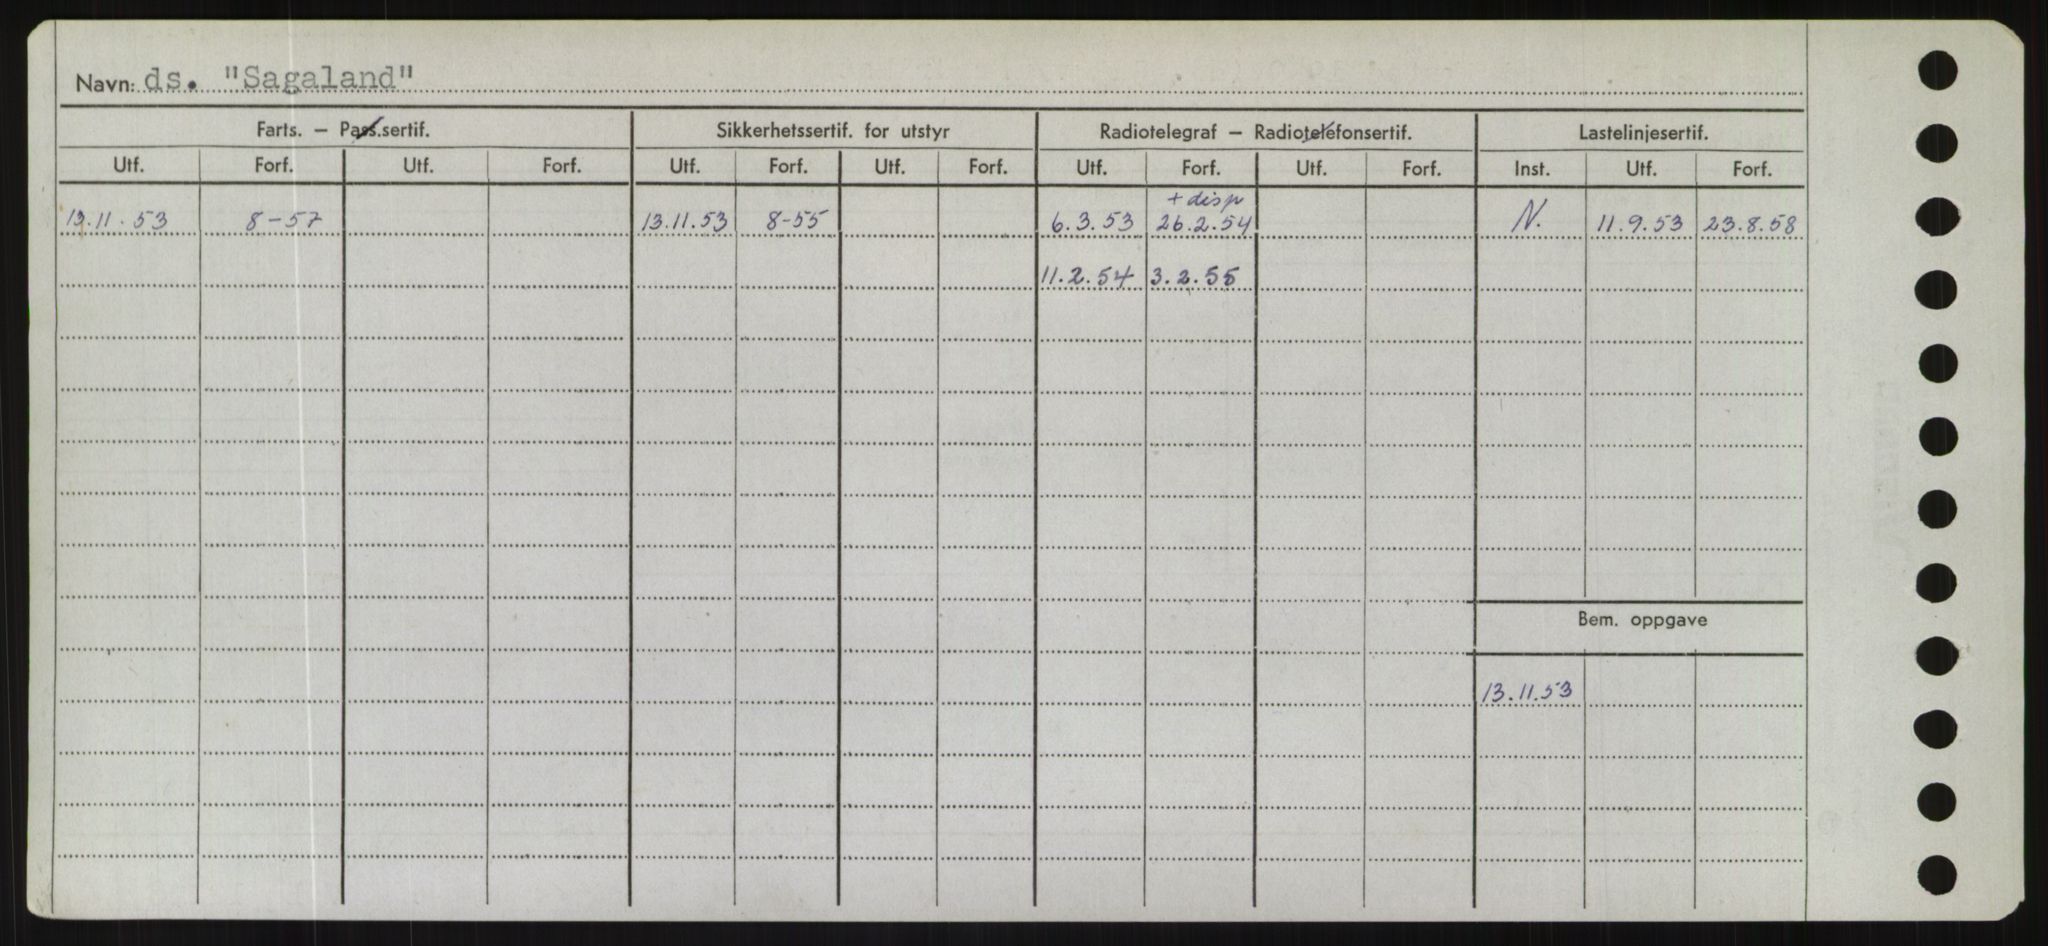 Navn: ds. "Sagaland"
Farts. – Pass.sertif. Sikkerhetssertif. for utstyr Radiotelegraf – Radiotelefonsertif. Lastelinjesertif.
Utf. Forf. Utf. Forf. Utf. Forf. Utf. Forf. Utf. Forf. Utf. Forf. Inst. Utf. Forf.
+ disp
13.11.53 8-57 13.11.53 8-55 6.3.53 26.2.54 N. 11.9.53 23.8.58
11.2.54 3.2.55
Bem. oppgave
13.11.53